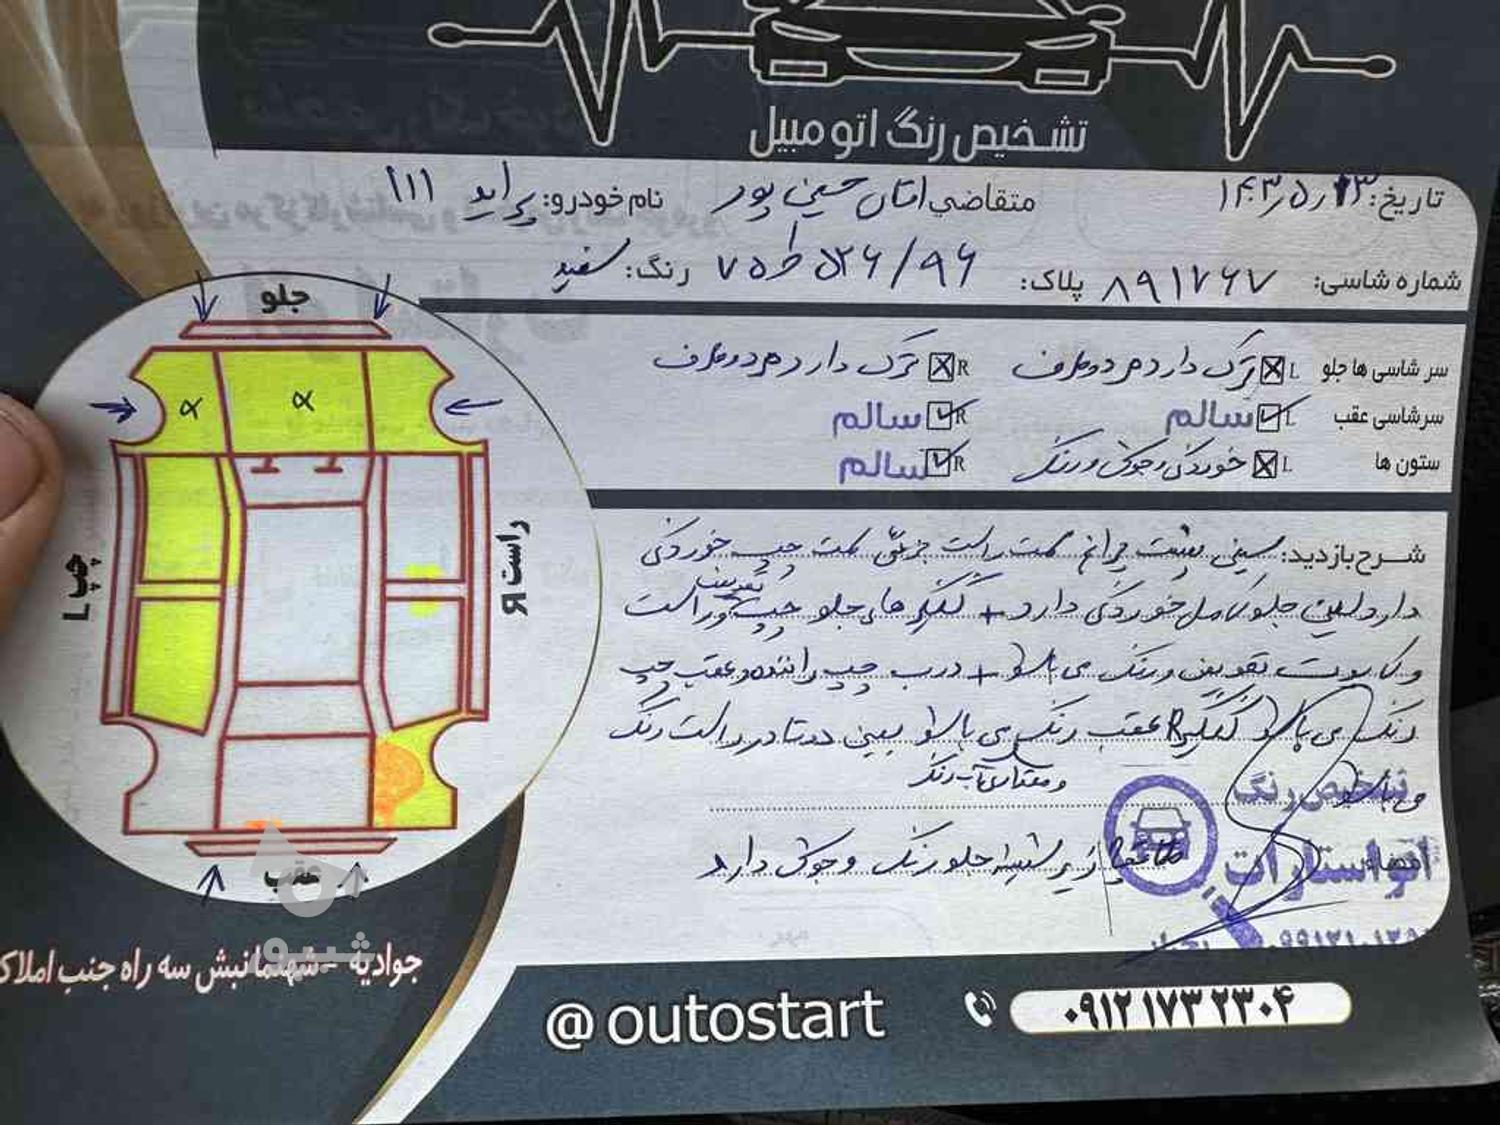 تشخیص رنگ اتومبیل
تاریخ: ۱۴۰۳/۵/۱۳ متقاضی حسین پور نام خودرو: پراید ۱۱۱
شماره شاسی: ۸۹۱۷۶۷ پلاک: ۷۵ط۵۲۶/۹۶ رنگ: سفید
سر شاسی ها جلو L ترک دارد هر دو طرف R ترک دارد هر دو طرف
سرشاسی عقب L سالم R سالم
ستون ها L خوردگی و جوش و رنگ R سالم
شرح بازدید: سینی پشت چراغ سمت راست جزئی سمت چپ خوردگی
دارد سینی جلو کامل خوردگی دارد + گلگیر های جلو چپ تعویض و راست
و کاپوت تعویض و رنگ می باشد + درب چپ راننده و عقب چپ
رنگ می باشد گلگیر R عقب رنگ می باشد بین دوتا در راست رنگ
می باشد و مقداری آب رنگ
زیر شیشه جلو رنگ و جوش دارد
امضاء:
تشخیص رنگ
اتواستارت
جلو
α α
چپ L
راست R
عقب
شیپور
جوادیه - نبش سه راه جنب املاک
@outostart
۰۹۱۲ ۱۷۳ ۲۳۰۴